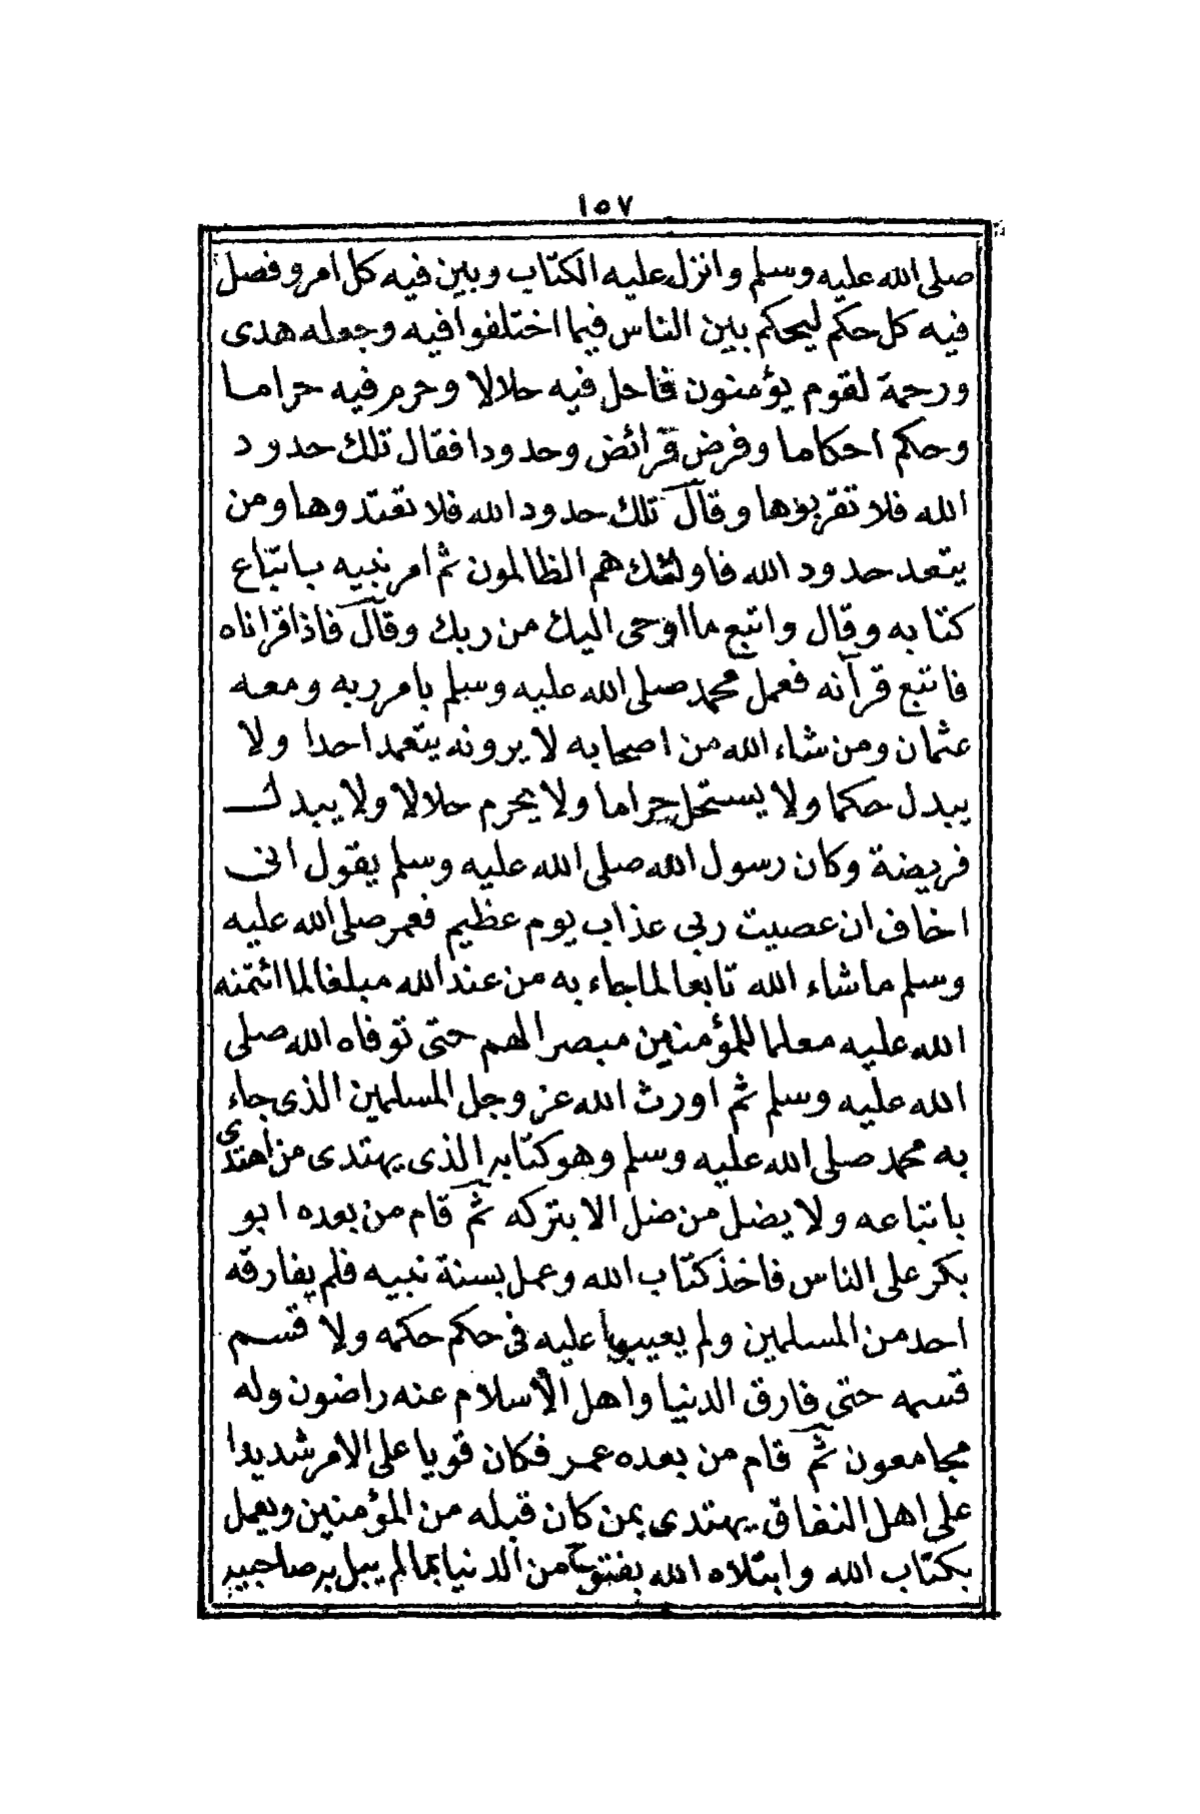 ١٥٧
صلى الله عليه وسلم وانزل عليه الكتاب وبين فيه كل امر وفصل
فيه كل حكم ليحكم بين الناس فيما اختلفوا فيه وجعله هدى
ورحمة لقوم يؤمنون فاحل فيه حلالا وحرم فيه حراما
وحكم احكاما وفرض فرائض وحدودا فقال تلك حدود
الله فلا تقربوها وقال تلك حدود الله فلا تعتدوها ومن
يتعد حدود الله فاولئك هم الظالمون ثم امر نبيه باتباع
كتابه وقال واتبع ما اوحى اليك من ربك وقال فاذا قراناه
فاتبع قرآنه فعمل محمد صلى الله عليه وسلم بامر ربه ومعه
عثمان ومن شاء الله من اصحابه لا يرونه يتعمد احدا ولا
يبدل حكما ولا يستحل حراما ولا يحرم حلالا ولا يبدل
فريضة وكان رسول الله صلى الله عليه وسلم يقول انى
اخاف ان عصيت ربى عذاب يوم عظيم فعمر صلى الله عليه
وسلم ما شاء الله تابعا لما جاء به من عند الله مبلغا لما ائتمنه
الله عليه معلما للمؤمنين مبصرا لهم حتى توفاه الله صلى
الله عليه وسلم ثم اورث الله عز وجل المسلمين الذى جاء
به محمد صلى الله عليه وسلم وهو كتابه الذى يهتدى من اهتدى
باتباعه ولا يضل من ضل الا بتركه ثم قام من بعده ابو
بكر على الناس فاخذ كتاب الله وعمل بسنة نبيه فلم يفارقه
احد من المسلمين ولم يعيبوا عليه فى حكم حكمه ولا قسم
قسمه حتى فارق الدنيا واهل الأسلام عنه راضون وله
مجامعون ثم قام من بعده عمر فكان قويا على الامر شديدا
على اهل النفاق يهتدى بمن كان قبله من المؤمنين ويعمل
بكتاب الله وابتلاه الله بفتوح من الدنيا بما لم يبل به صاحبيه